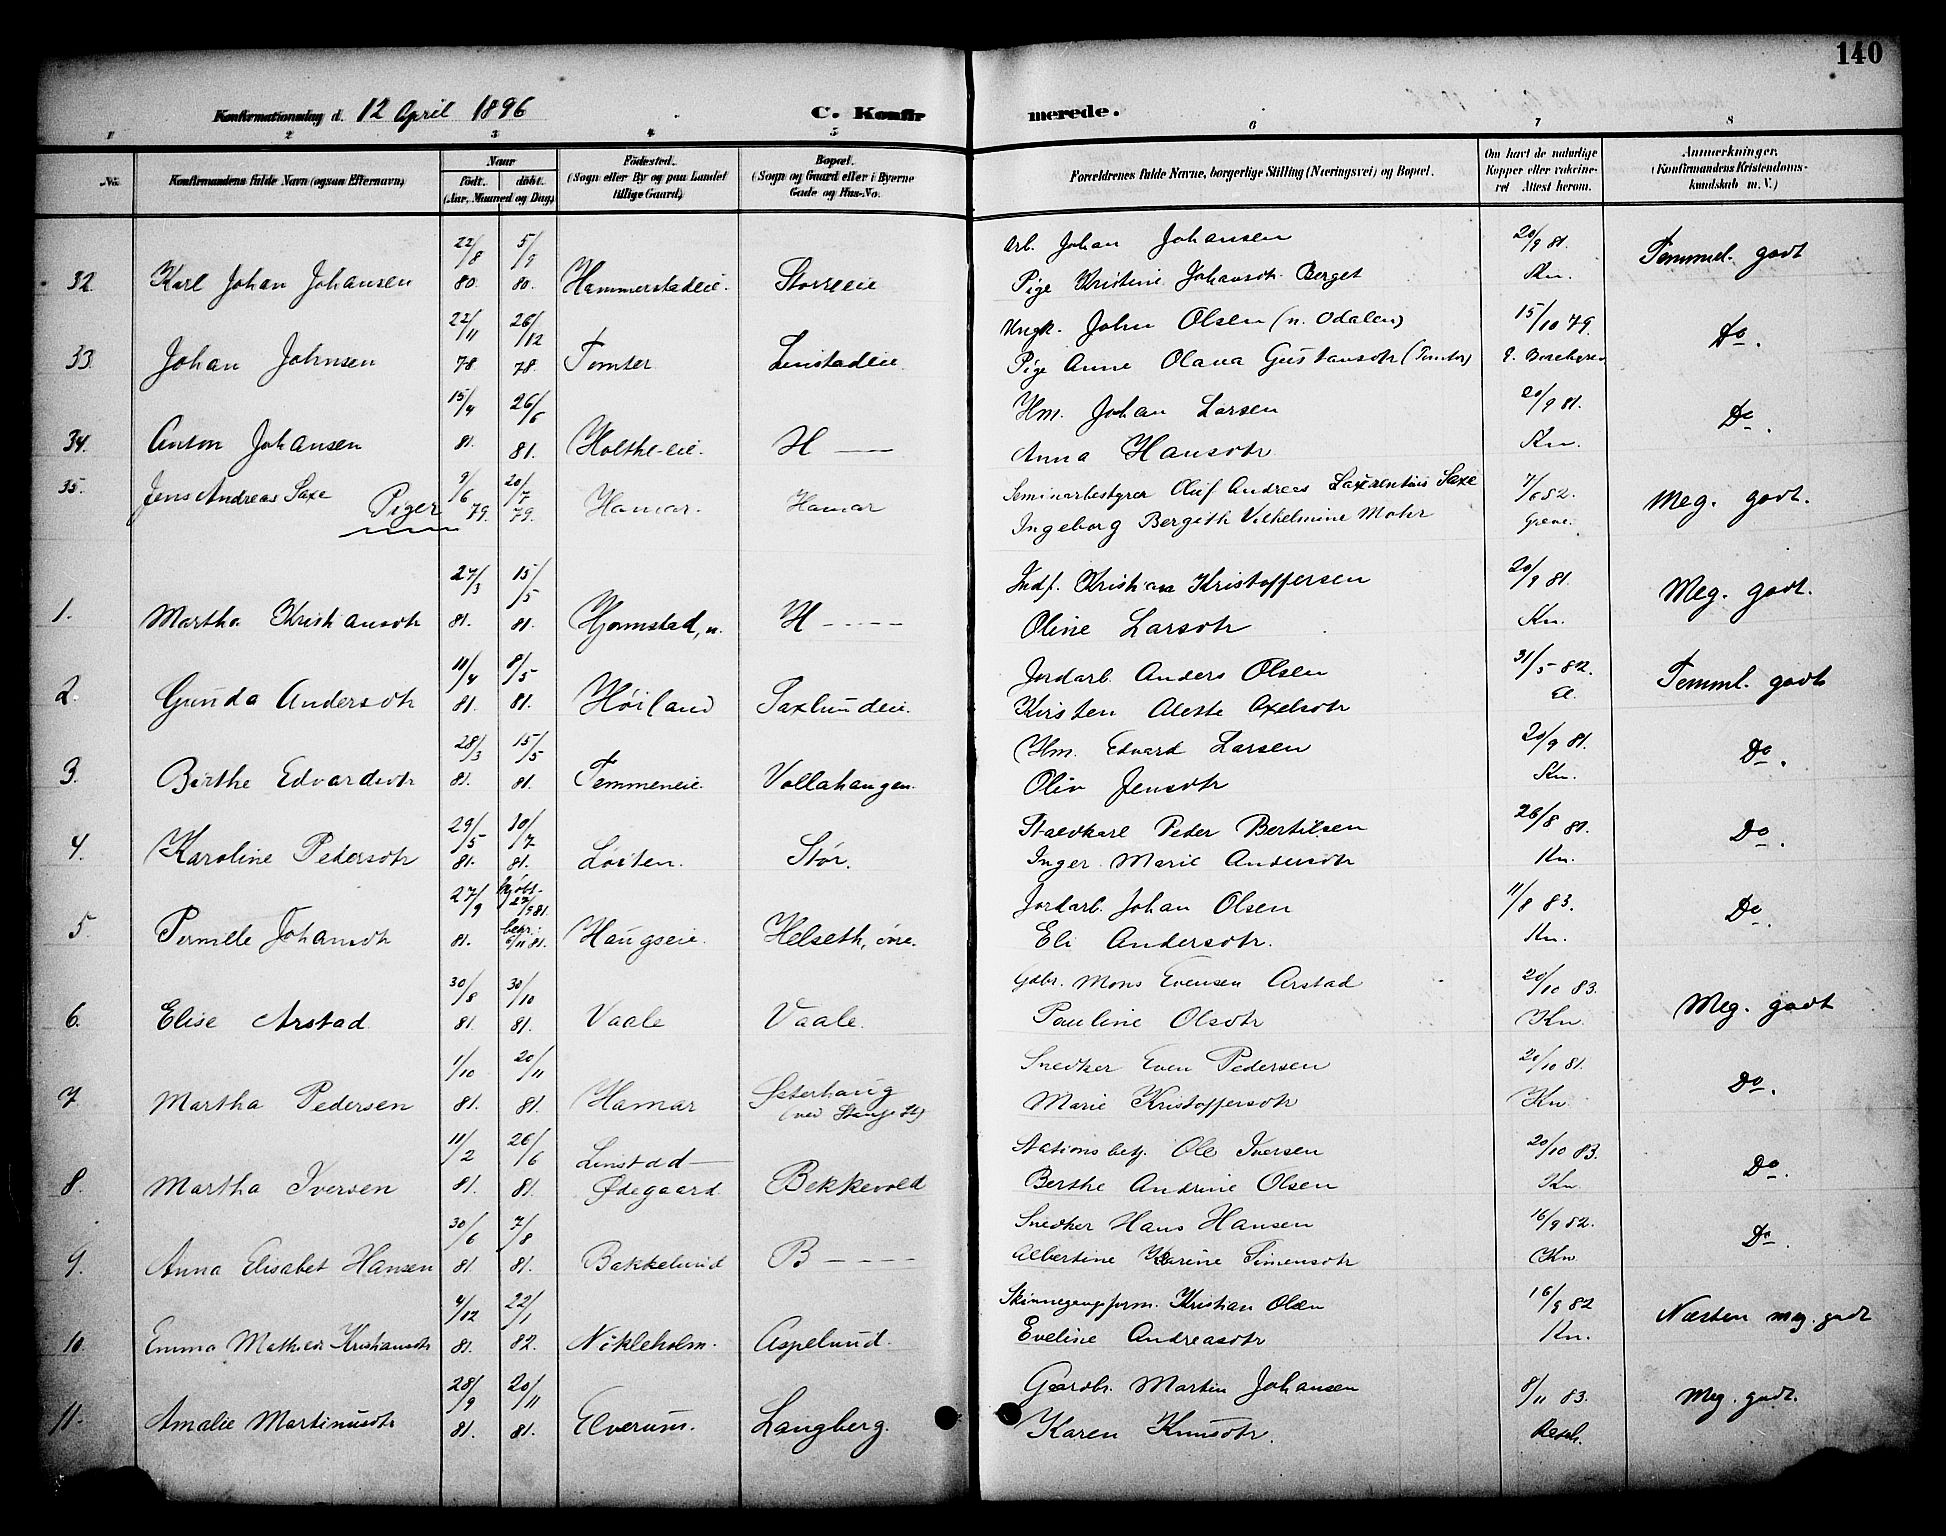 140
Konfirmationsdag d. 12 April 1896 C. Konfirmerede.
1 2 3 4 5 6 7 8
No. Konfirmandens fulde Navn (ogsaa Efternavn) Naar Födested. Bopæl. Forældrenes fulde Navne, borgerlige Stilling (Næringsvei) og Bopæl. Om havt de naturlige Anmerkninger.
födt. döbt. (Sogn eller By og paa Landet (Sogn og Gaard eller i Byerne Kopper eller vaccine- (Konfirmandens Kristendoms-
(Aar, Maaned og Dag) tillige Gaard) Gade og Hus-No. ret Attest herom. kundskab m. V.)
22/8 5/9 Arb. Johan Johansen 20/9 81. Temmel. godt
32. Karl Johan Johansen 80. 80. Hammerstadeie. Storreeie Pige Kristine Johansdtr Berget Kn.
22/11 26/12 Ungk. John Olsen (n. Odalen) 15/10 79. Do.
33. Johan Johnsen 78. 78. Tomter Linstadeie Pige Anne Olava Gustavsdtr (Tomter)
15/4 26/6 Hm. Johan Larsen 20/9 81. Do.
34. Anton Johansen 81. 81. Holthe-eie. H — Anna Hansdtr Kn.
35. Jens Andreas Saxe 9/6 20/7 Hamar. Hamar Seminarbestyrer Oluf Andreas Laurentius Saxe 7/6 82. Meg. godt.
Piger 79. 79. Ingeborg Bergith Vilhelmine Mohr Greve.
27/3 15/5 Indf. Kristian Kristoffersen 20/9 81. Meg. godt.
1. Martha Kristiansdtr 81. 81. Hjermstad, n. H ---- Oline Larsdtr Kn.
11/4 8/5 Jordarb. Anders Olsen 31/5 82. Temml. godt
2. Gunda Andersdtr 81. 81. Høiland Saxlundeie. Kirsten Alette Axelsdtr
28/3 15/5 Hm. Edvard Larsen 20/9 81. Do.
3. Birthe Edvardsdtr 81. 81. Femmeneie. Vollahaugen. Oliv Jensdtr Kn.
29/5 10/7 Staldkarl Peder Bertilsen 26/8 81. Do.
4. Karoline Pedersdtr 81. 81. Løiten. Stør. Inger Marie Andersdtr Kn.
27/9 hjdbt. 27/9 81. Jordarb. Johan Olsen 11/8 83. Do.
5. Pernille Johansdtr 81. bekr. 6/11 81. Haugseie. Helseth, øvre. Eli Andersdtr. Kn.
30/8 30/10 Gdbr. Mons Evensen Arstad 20/10 83. Meg. godt
6. Elise Arstad 81. 81. Vaale Vaale. Pauline Olsdtr Kn.
1/10 20/11 Snedker Even Pedersen 20/10 81. Do.
7. Martha Pedersen 81. 81. Hamar Sæterhaug (ved Stange St) Marie Kristoffersdtr Kn.
11/2 26/6 Linstad— Stationsbetj. Ole Iversen 20/10 83. Do.
8. Martha Iversen 81. 81. Ødegaard Bekkevold Berthe Andrine Olsen Kn.
30/6 7/8 Snedker Hans Hansen 16/9 82. Do.
9. Anna Elisabet Hansen 81. 81. Bakkelund B --- Albertine Karine Simensdtr Kn
4/12 22/1 Skinnegangsform. Kristian Olsen 16/9 82 Næsten meg. godt
10. Emma Mathea Kristiansdtr 81. 82. Nikleholm. Aspelund. Eveline Andreasdtr Kn.
28/9 20/11 Gaardbr. Martin Johansen 8/11 83. Meg. godt.
11. Amalie Martinusdtr 81. 81. Elverum. Langberg. Karen Knusdtr.